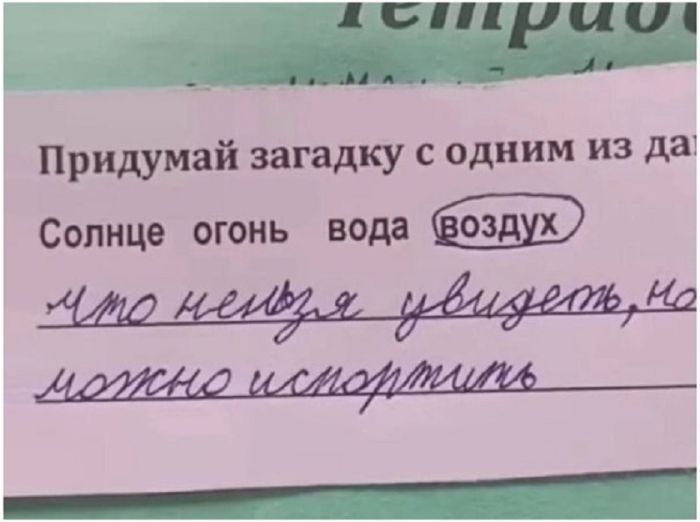 Тетрадь
Придумай загадку с одним из
Солнце огонь вода воздух
что нельзя увидеть, но
можно испортить